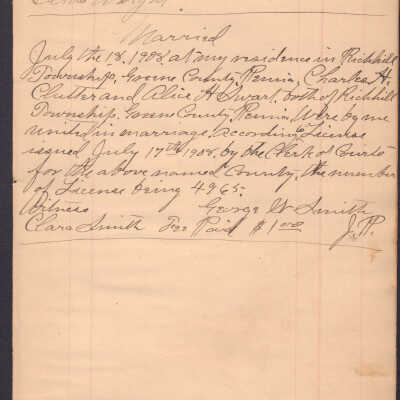 Married
July the 18, 1908, at my residence in Richhill
Township, Greene County, Penna, Charles H.
Clutter and Alice H. Swart, both of Richhill
Township, Greene County, Penna. Were by me
united in marriage, according to License
issued July 17th 1908, by the Clerk of Courts
for the above named County, the number
of License being 4965.
Witness George W Smith
Clara Smith Fee Paid $1.00 J.P.